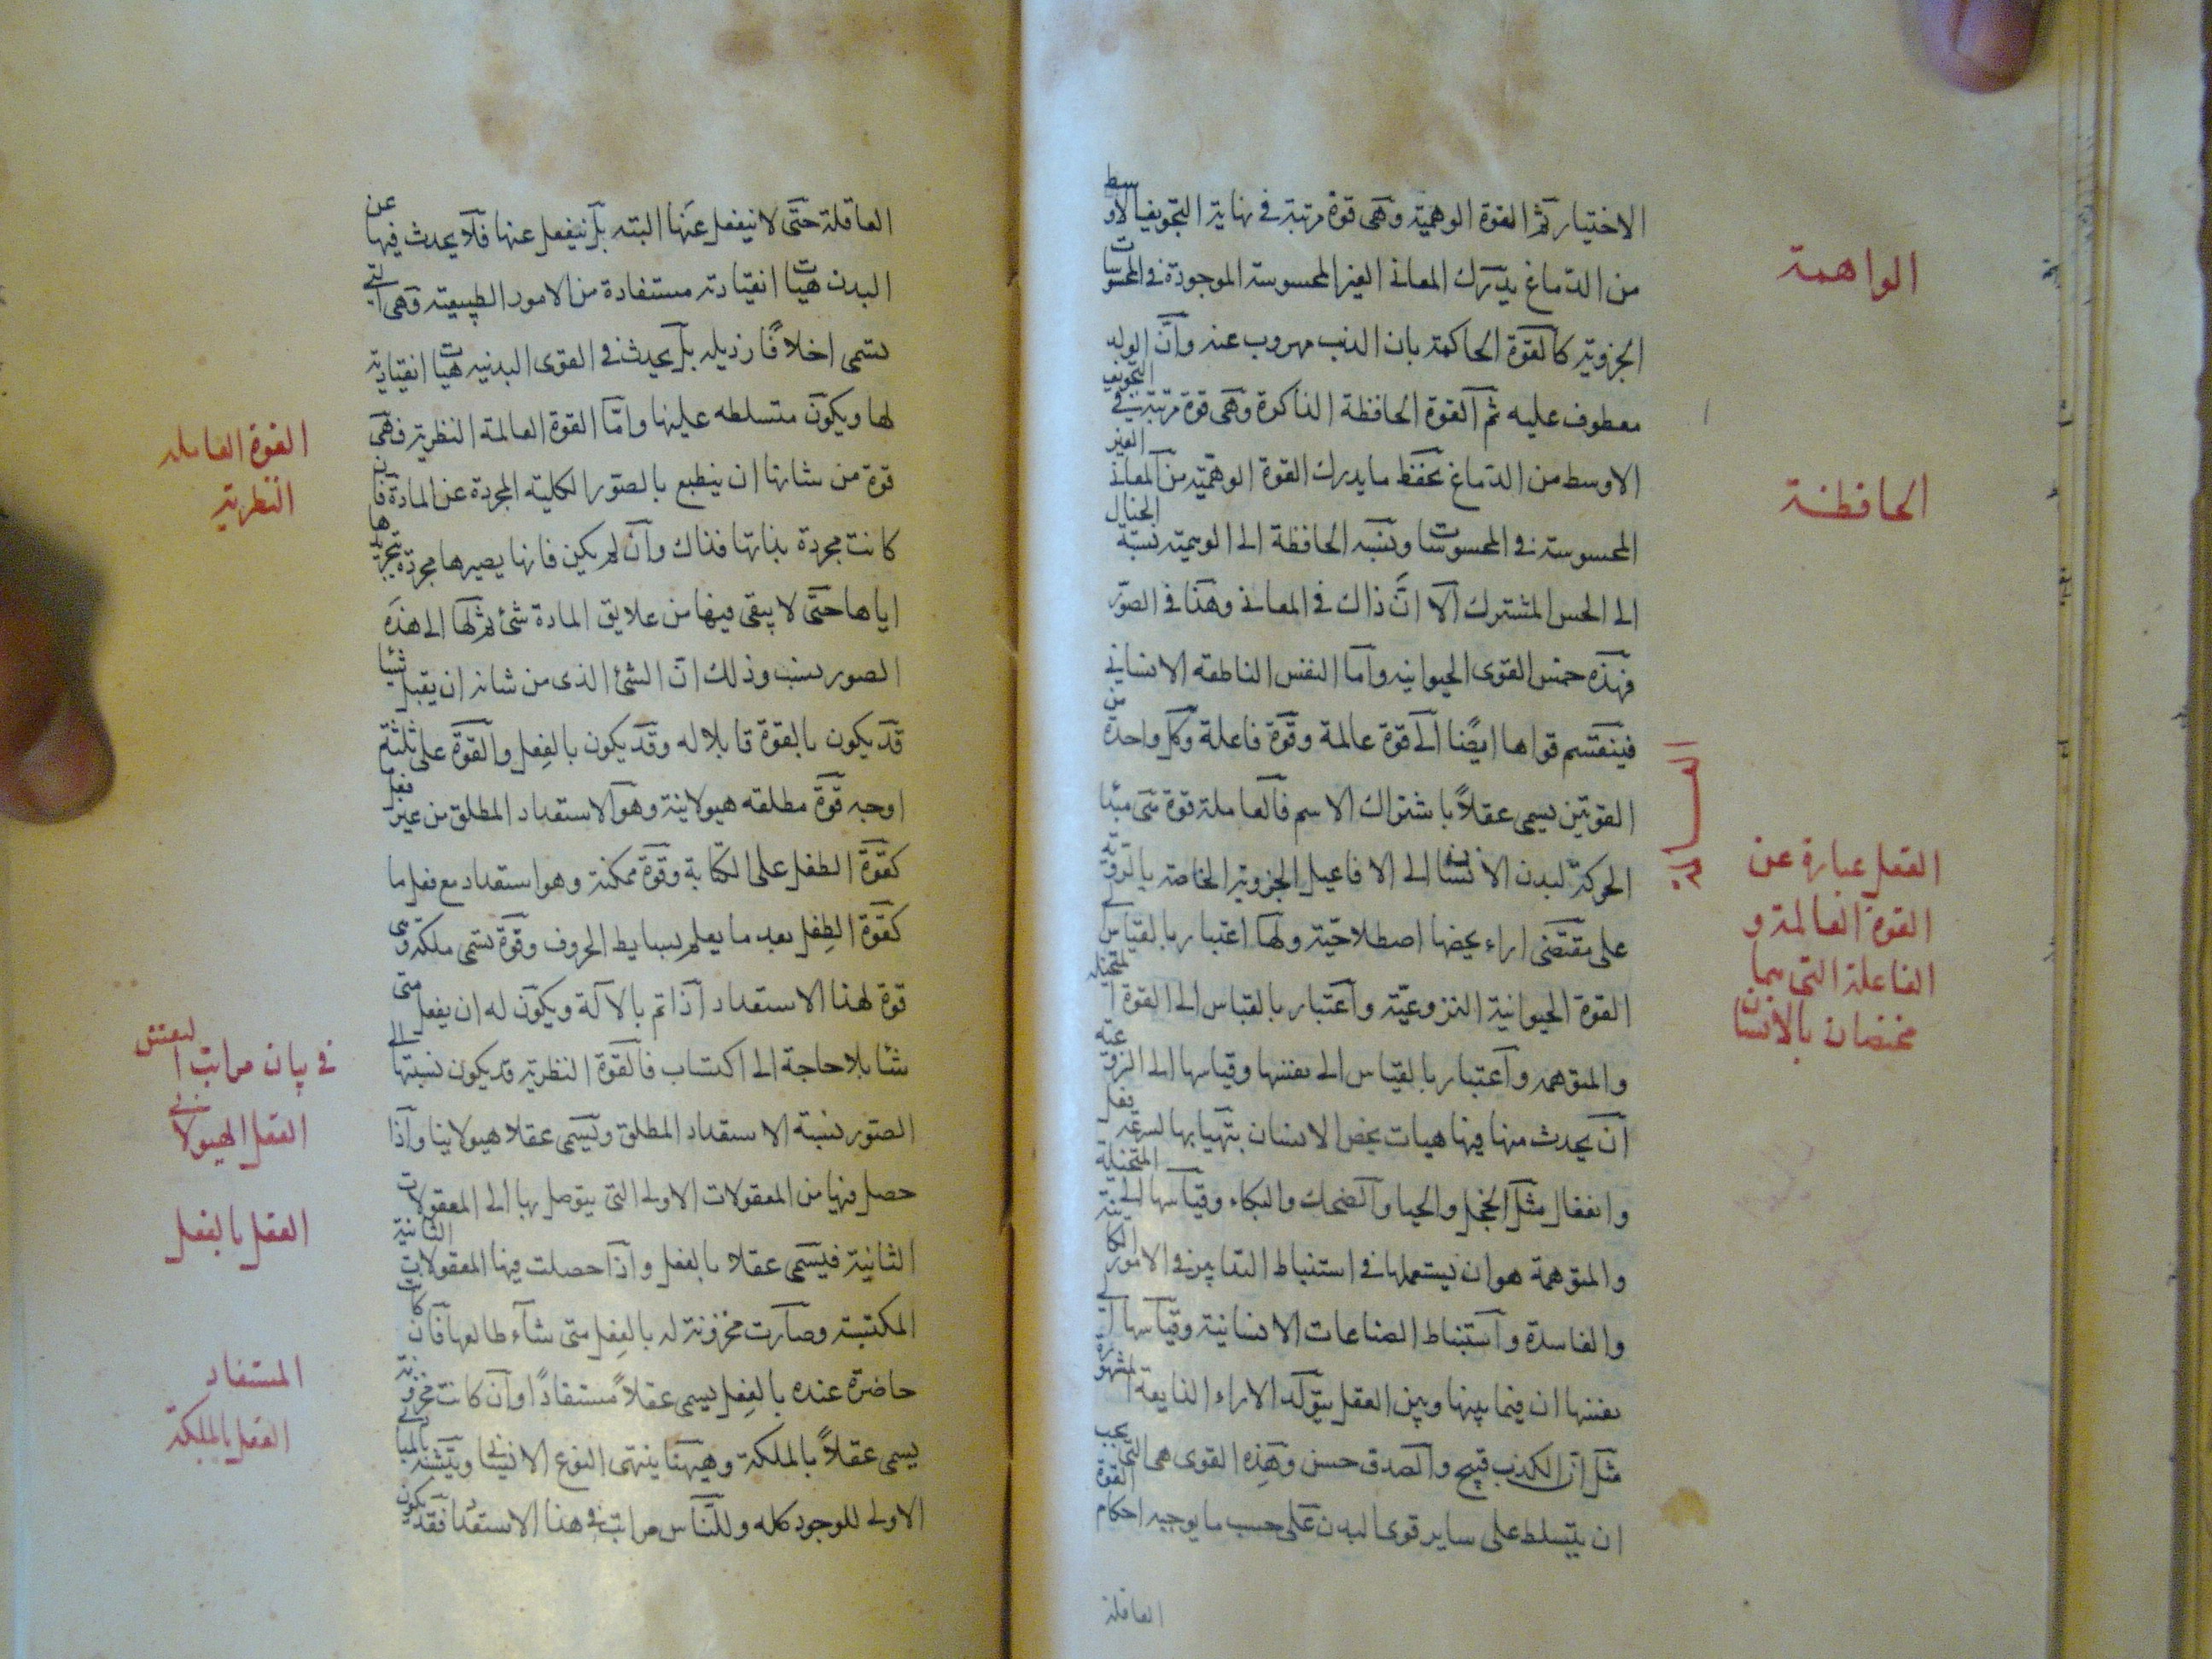 الاختيار ثم القوة الوهمية وهى قوة مرتبة فى نهاية التجويف الاوسط
من الدماغ يدرك المعانى الغير المحسوسة الموجودة فى المحسوسات
الجزوية كالقوة الحاكمة بان الذيب مهروب عنه وان الولد
معطوف عليه ثم القوة الحافظة الذاكرة وهى قوة مرتبة فى التجويف
الاوسط من الدماغ يحفظ ما يدرك القوة الوهمية من المعانى الغير
المحسوسة فى المحسوسات ونسبة الحافظة الى الوهمية نسبة الخيال
الى الحس المشترك الا ان ذاك فى المعانى وهذا فى الصور
فهذه خمس القوى الحيوانية واما النفس الناطقة الانسانى
فينقسم قواها ايضًا الى قوة عالمة وقوة فاعلة وكل واحدة من
القوتين يسمى عقلاً باشتراك الاسم فالعاملة قوة هى مبدا
الحركة لبدن الانسان الى الافاعيل الجزوية الخاصة بالروية
على مقتضى اراء يخصها اصطلاحية ولها اعتبار بالقياس الى
القوة الحيوانية النزوعية واعتبار بالقياس الى القوة المتخيلة
والمتوهمه واعتبار بالقياس الى نفسها وقياسها الى النزوعية
ان يحدث منها فيها هيات يخص الانسان يتهيا بها لسرعة فعل
وانفعال مثل الخجل والحيا والضحك والبكاء وقياسها الى المتخيلة
والمتوهمة هو ان يستعملها فى استنباط التدابير فى الامور الكاينة
والفاسدة واستنباط الصناعات الانسانية وقياسها الى
نفسها ان فيما بينها وبين العقل يتولد الاراء الذايعة المشهورة
مثل ان الكذب قبيح والصدق حسن وهذه القوى هى التى يجب
ان يتسلط على ساير قوى البدن على حسب ما يوجبه احكام القوة
العاقلة
الواهمة
الحافظة
العاملة
العقل عبارة عن
القوة العالمة و
الفاعلة التى بهما
مختصان بالانسان
العاقلة حتى لا ينفعل عنها البتة بل ينفعل عنها فلا يحدث فيها عن
البدن هيات انقيادية مستفادة من الامور الطبيعية وهى التى
تسمى اخلاقًا رذيله بل يحدث فى القوى البدنية هيات انقيادية
لها ويكون متسلطه عليها واما القوة العالمة النظرية فهى
قوة من شانها ان ينطبع بالصور الكلية المجردة عن المادة فان
كانت مجردة بذاتها فذاك وان لم يكن فانها يصيرها مجردة بتجريدها
اياها حتى لا يبقى فيها من علايق المادة شئ ثم لها الى هذه
الصور نسب وذلك ان الشئ الذى من شانه ان يقبل شيئا
قد يكون بالقوة قابلا له وقد يكون بالفعل والقوة على ثلثة
اوجه قوة مطلقه هيولانية وهو الاستعداد المطلق من غير فعل
كقوة الطفل على الكتابة وقوة ممكنة وهو استعداد مع فعل ما
كقوة الطفل بعد ما يعلم بسايط الحروف وقوة تسمى ملكة وهى
قوة لهذا الاستعداد اذا تم بالالة ويكون له ان يفعل متى
شا بلا حاجة الى اكتساب فالقوة النظرية قد يكون نسبتها الى
الصور نسبة الاستعداد المطلق وتسمى عقلا هيولانيا واذا
حصل فيها من المعقولات الاولى التى يتوصل بها الى المعقولات
الثانية فيسمى عقلا بالفعل واذا حصلت فيها المعقولات الثانية
المكتسبة وصارت مخزونة له بالفعل متى شاء طالعها فان كانت
حاضرة عنده بالفعل يسمى عقلاً مستفادًا وان كانت مخزونة
يسمى عقلاً بالملكة وهيهنا ينتهى النوع الانسانى ويتشبه بالمبادى
الاولى للوجود كله وللناس مراتب فى هذا الاستعداد فقد يكون
القوة العامله
النظرية
فى بيان مراتب النفس
العقل الهيولانى
العقل بالفعل
المستفاد
العقل بالملكة